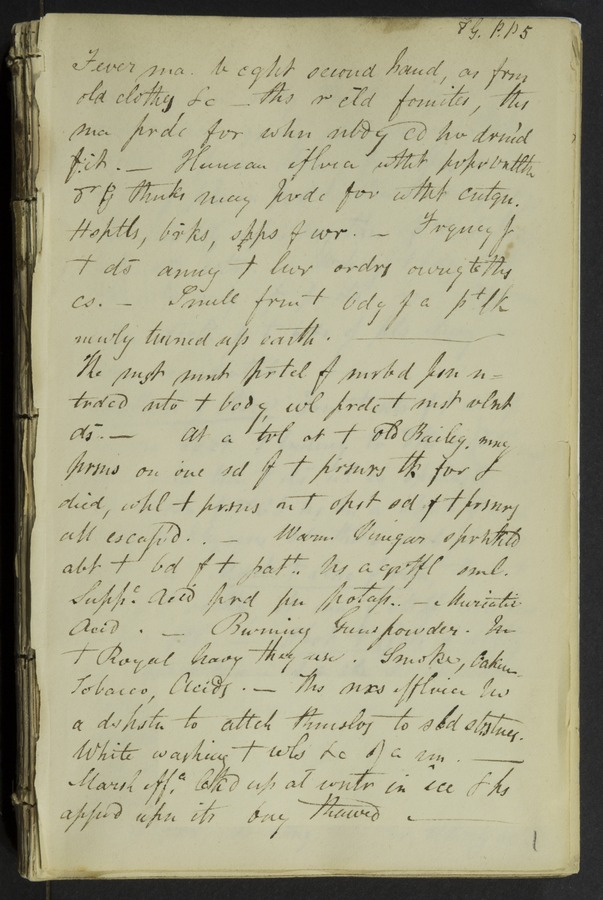 &G. P. P 5
Fever ma. b cght second hand, as from
old clothes &c — ths r eld fomites, ths
ma prdc for whn nbdy cd hv drivd
fr it. — Human flvia
or thnks may prdc for cntgn.
Hsptls, brks, shps f wr. — Frquncy f
+ ds amng + lwr ordrs owng to ths
cs. — Smell frm + bdy f a pt lk
newly turned up earth. —
The mst mnt prtcl f mrbd psn n-
trdcd nto + body, wl prdc + mst vlnt
ds. — At a trl at + Old Bailey, mny
prsns on one sd f + prsnrs tk fvr &
died, whl + prsns on + opst sd f + prsnrs
all escap'd. — Warm Vinegar sprnkld
abt + bd f + patt. hs a grtfl sml.
Acid prd potass. — Muriatic
Acid. — Burning Gunpowder. In
+ Royal Navy they use. Smoke, Oakum
Tobacco, Acids. — Ths nxs fflvia hv
a dspstn to attch thmslvs to sld sbstncs.
White washing + wls &c f a rm. —
Marsh effa. lckd up at wntr in ice & hs
appr'd upn its bng thawed —
1